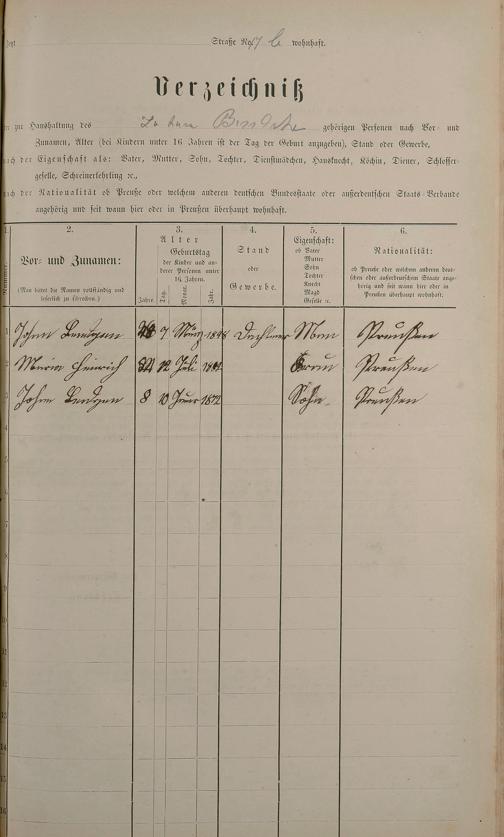 Straße No. 17 b wohnhaft.
Verzeichniß
zur Haushaltung des gehörigen Personen nach Vor- und
Zunamen, Alter (bei Kindern unter 16 Jahren ist der Tag der Geburt anzugeben), Stand oder Gewerbe,
nach der Eigenschaft als: Vater, Mutter, Sohn, Tochter, Dienstmädchen, Hausknecht, Köchin, Diener, Schlosser-
geselle, Schreinerlehrling ꝛc.,
nach der Nationalität ob Preuße oder welchem anderen deutschen Bundesstaate oder außerdeutschen Staats-Verbande
angehörig und seit wann hier oder in Preußen überhaupt wohnhaft.
2.
Vor- und Zunamen:
(Man bittet die Namen vollständig und
leserlich zu schreiben.)
3.
Alter
Geburtstag
der Kinder und an-
derer Personen unter
16 Jahren.
Jahre.
Tag.
Monat.
Jahr.
4.
Stand
oder
Gewerbe.
5.
Eigenschaft:
ob Vater
Mutter
Sohn
Tochter
Knecht
Magd
Geselle ꝛc.
6.
Nationalität:
ob Preuße oder welchem anderen deut-
schen oder außerdeutschem Staate ange-
hörig und seit wann hier oder in
Preußen überhaupt wohnhaft.
1 Johan 7 März 1848 Man Preußen
2 Maria Heinrich 34 12 Juli Frau Preußen
3 Johan 8 13 1872 Sohn Preußen